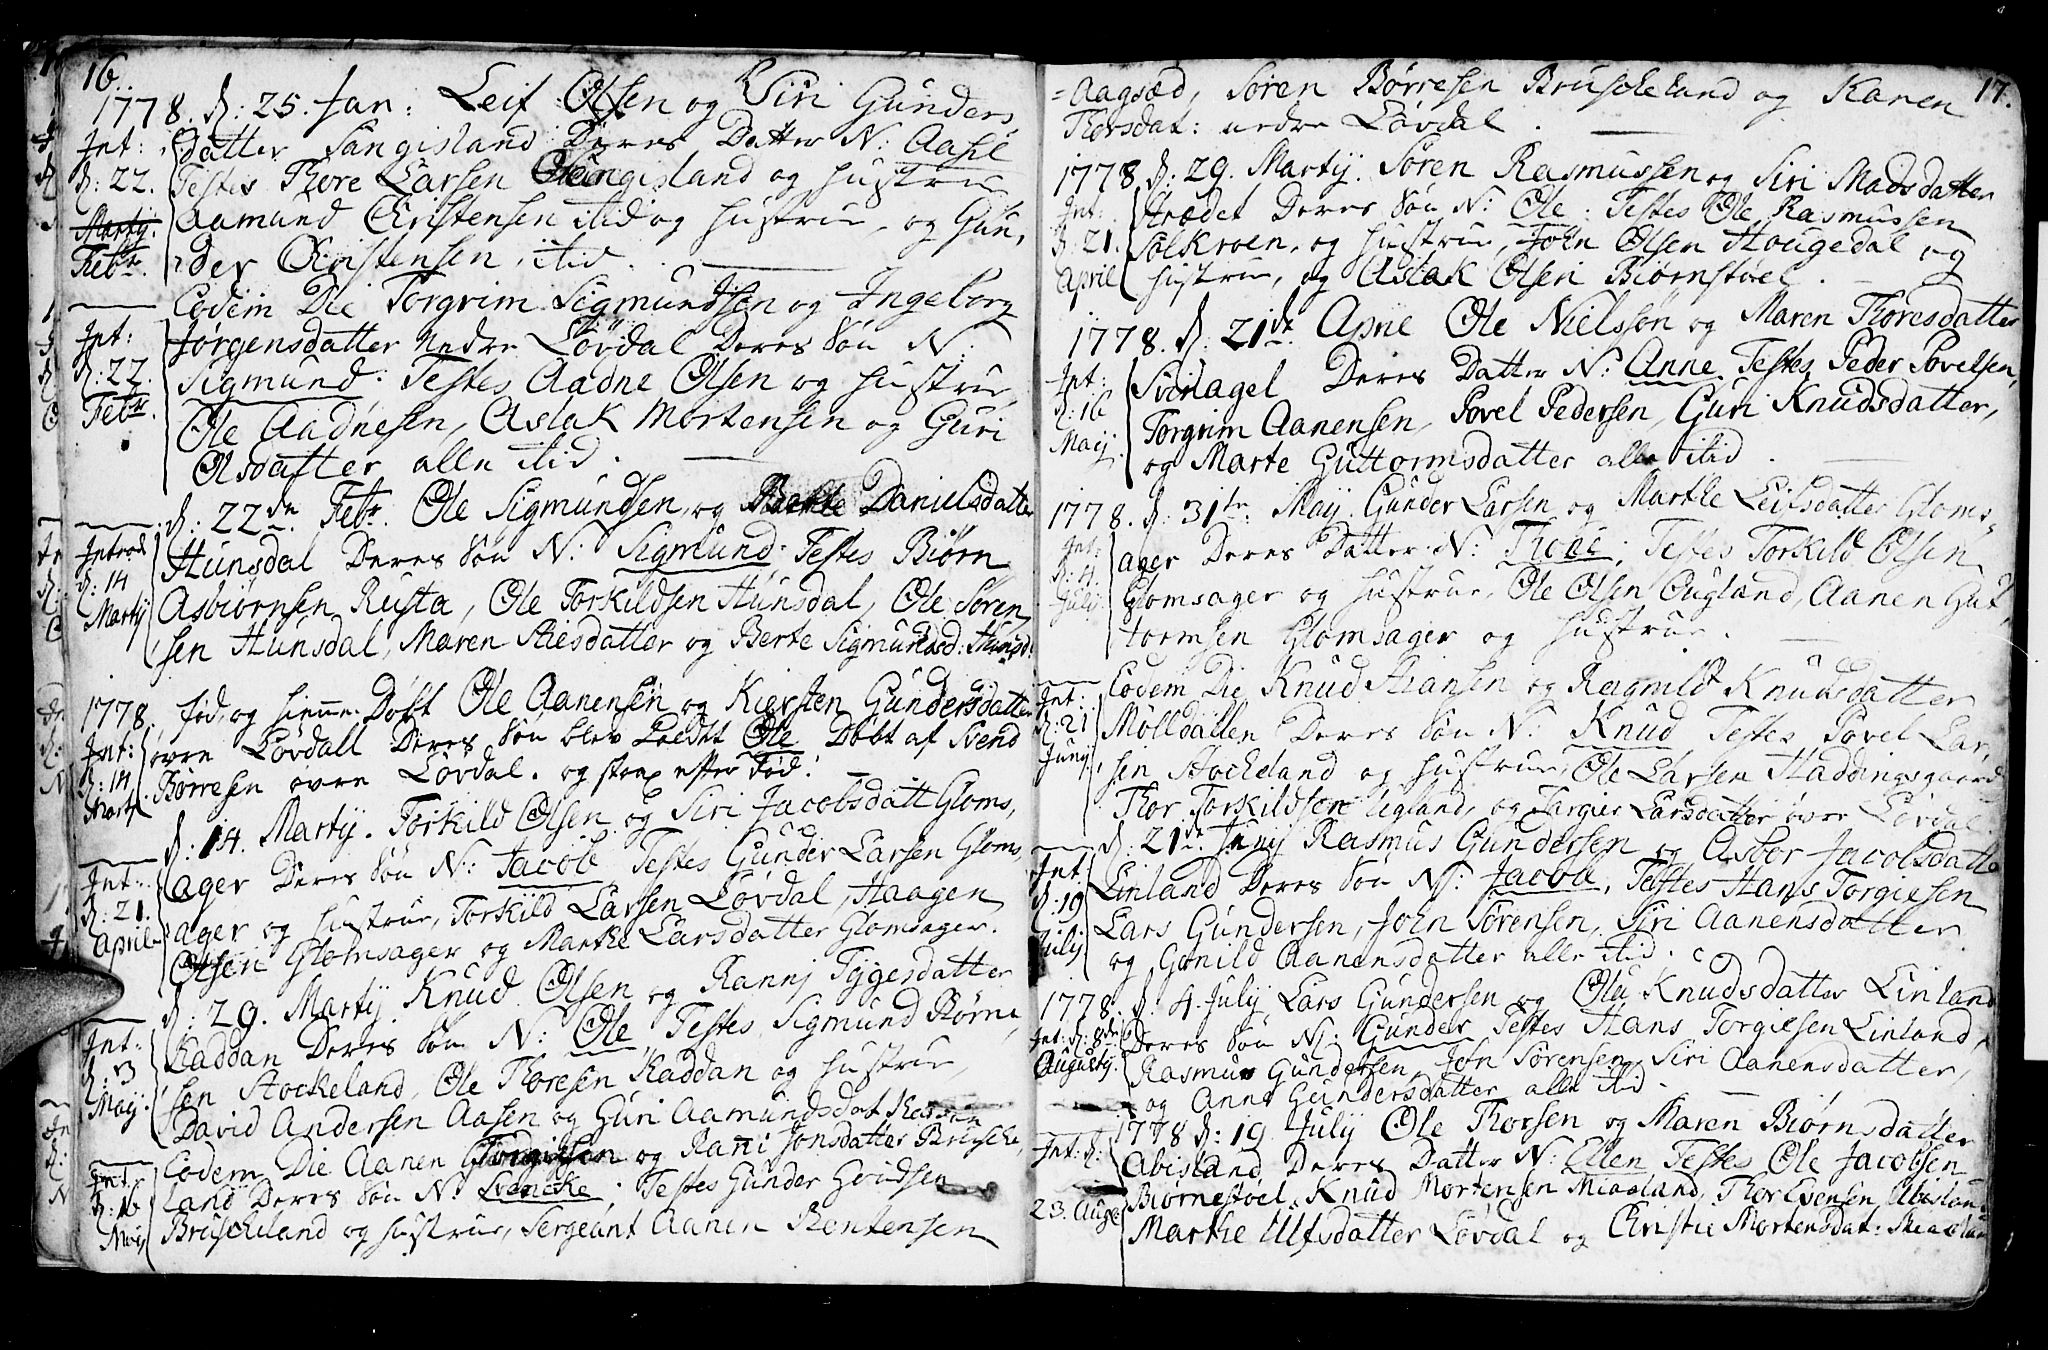 16.
1778. d: 25. Jan: Leif Olsen og Siri Gunders
Int: datter Sangisland Deres Datter N: Aasil
d: 22. Testes Thore Larsen Sangisland og hustrue
Martij. Aamund Christensen itid og hustrue, og Gun,
Febr. der Christensen itid.
Eodem Die Torgrim Sigmundsen og Ingeborg
Int: Jørgensdatter Nedre Løvdal Deres Søn N:
d: 22. Sigmund. Testes Aadne Olsen og hustrue
Febr. Ole Aadnesen, Aslak Mortensen og Guri
Olsdatter alle itid.
d: 22de Febr. Ole Sigmundsen og Berte Danielsdatter
Introd Hunsdal Deres Søn N: Sigmund. Testes Biørn
d: 14 Asbiørnsen Rusta, Ole Torkildsen Hunsdal, Ole Søren
Martij sen Hunsdal, Maren Aiesdatter og Berte Sigmundsd: Hunsd:
1778. fød, og hiemme Døbt Ole Aanensen og Kiersten Gundersdatter
Int: øvre Løvdall Deres Søn blev kaldet Ole Døbt af Svend
d: 14 Børresen øvre Løvdal. og strax efter Død.
Martij.
d: 14. Martij. Torkild Olsen og Siri Jacobsdatt Gloms,
Int: ager Deres Søn N: Jacob Testes Gunder Larsen Gloms,
d: 21. ager og hustrue, Torkild Larsen Løvdal, Haagen
April Olsen Glomsager og Marthe Larsdatter Glomsager.
d: 29. Martij Knud Olsen og Rannj Tygesdatter
Int: Raddan Deres Søn N: Ole, Testes Sigmund Børne,
d: 3 sen Stockeland, Ole Thoresen Raddan og hustrue,
Maij. David Andersen Aasen og Guri Aamundsdat
Eodem Die Aanen og Rani Jonsdatter Brusche,
Int: land Deres Søn N: Svencke. Testes Gunder Goudsen
d: 16 Bruscheland og hustrue, Sergeant Aanen Bentensen
Maij
17.
= Aagsæd, Søren Børresen Bruscheland og Karen
Thorsdat: nedre Løvdal.
1778 d: 29. Martij. Søren Rasmussen og Siri Madsdatter
Int: Strædet Deres Søn N: Ole. Testes Ole Rasmussen
d: 21. Solkroen, og hustrue, John Olsen Hougedal og
April hustrue, og Aslak Olsen Biørnstøel.
1778. d: 21de April Ole Nielsøn og Maren Thoresdatter
Int: Svinagel Deres Datter N: Anne Testes Peder Povelsen,
d: 16 Torgrim Aanensen, Povel Pedersen, Guri Knudsdatter,
Maij. og Marte Guttormsdatter alle itid.
1778. d: 31te Maij Gunder Larsen og Marthe Leifsdatter Gloms,
Int: ager Deres Datter N: Thone. Testes Torkild Olsen
d: 4. Glomsager og hustrue, Ole Olsen Ougland, Aanen Gut,
Julij. tormsen Glomsager og hustrue.
Eodem Die Knud Hansen og Ragnild Knudsdatter
Int: Mølldallen Deres Søn N: Knud Testes Povel Lar,
d: 21 sen Stockeland og hustrue, Ole Larsen Haddingsgaard,
Junij Thor Torkildsen Ugland, og Targier Larsdatter øvre Løvdal.
d: 21de Junij Rasmus Gundersen og Asbor Jacobsdatter
Int: Linland Deres Søn N: Jacob. Testes Hans Torgiesen
d: 19 Lars Gundersen, John Sørensen, Siri Aanensdatter
Julij og Gunild Aanensdatter alle itid.
1778. d. 4 Julij Lars Gundersen og Olu Knudsdatter Linland
Int: d: 8de Deres Søn N: Gunder Testes Hans Torgiesen Linland,
Augustij. Rasmus Gundersen, John Sørensen, Siri Aanensdatter,
og Anne Gundersdatter alle itid.
1778 d: 19 Julij Ole Thorsen og Maren Biørnsdatter
Int: d: Abisland Deres Datter N: Ellen Testes Ole Jacobsen
23. Aug. Biørnestøel, Knud Mortensen Miaaland, Thor Evensen Abisland
Marthe Ulfsdatter Løvdal og Christie Mortensdat: